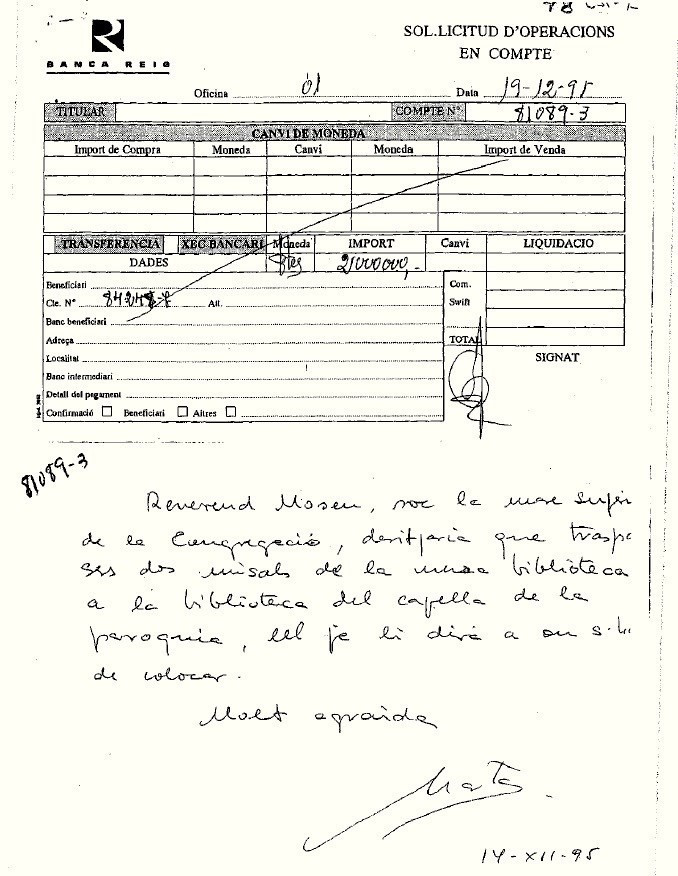 SOL.LICITUD D'OPERACIONS
EN COMPTE
BANCA REIG
Oficina 01 Data 19-12-95
TITULAR COMPTE Nº 81089-3
CANVI DE MONEDA
Import de Compra Moneda Canvi Moneda Import de Venda
TRANSFERENCIA XEC BANCARI Moneda IMPORT Canvi LIQUIDACIO
DADES Ptes 2000000,-
Beneficiari Com.
Cte. Nº Att. Swift
Banc beneficiari
Adreça TOTAL
Localitat SIGNAT
Banc intermediari
Detall del pegament
Confirmació Beneficiari Altres
81089-3
Reverend Mosen, soc la mare Super
de la Congregació, desitjaria que traspa
ses dos misals de la meva biblioteca
a la biblioteca del capella de la
paroquia, ell ja li dirà a on s'ha
de colocar.
Molt agraida
Marta
14-XII-95